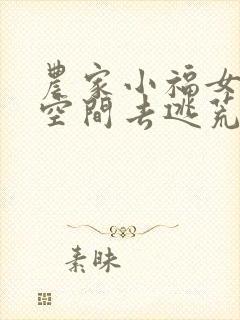 農家小福女
空間去逃荒
素昧